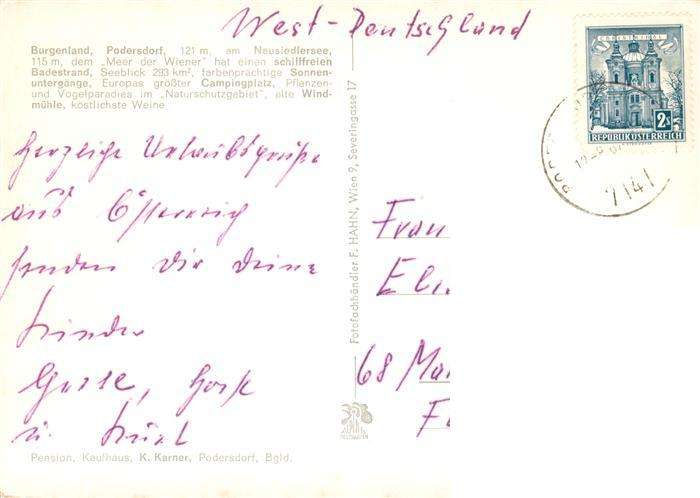 West-Deutschland
Burgenland, Podersdorf, 121 m, am Neusiedlersee,
115 m, dem „Meer der Wiener" hat einen schilffreien
Badestrand, Seeblick 293 km², farbenprächtige Sonnen-
untergänge, Europas größter Campingplatz, Pflanzen-
und Vogelparadies im „Naturschutzgebiet", alte Wind-
mühle, köstlichste Weine
CHRISTKINDL
2S
REPUBLIK ÖSTERREICH
7141
Herzliche Urlaubsgrüße
aus Österreich
senden Dir Deine
Kinder
Horst
u.
Fotofachhändler F. HAHN, Wien 9, Severingasse 17
Frau
68 Man
Pension, Kaufhaus, K. Karner, Podersdorf, Bgld.